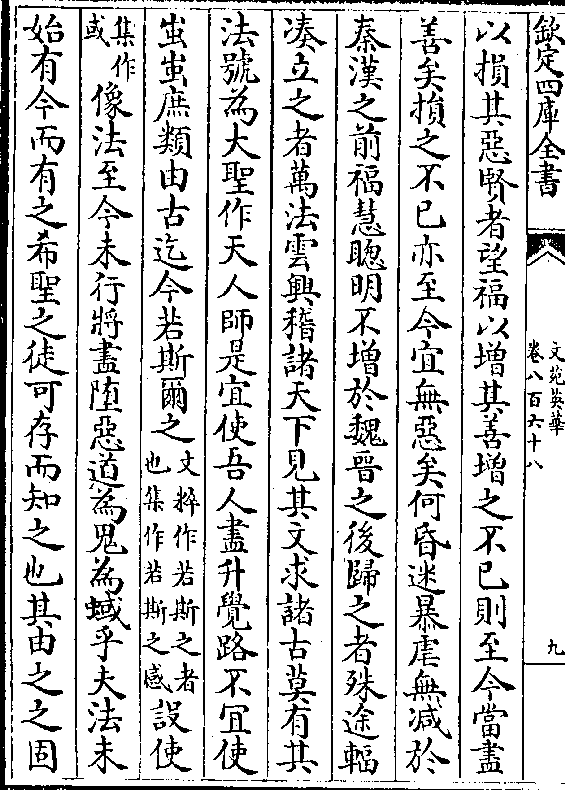 欽定四庫全書
文苑英華
卷八百六十八
九
以損其惡賢者望福以增其善增之不已則至今當盡
善矣損之不已亦至今宜無惡矣何昏迷暴虐無減於
秦漢之前福慧聰明不增於魏晉之後歸之者殊途輻
湊立之者萬法雲興稽諸天下見其文求諸古莫有其
法號為大聖作天人師是宜使吾人盡升覺路不冝使
蚩蚩庶類由古迄今若斯爾之文粹作若斯之者也集作若斯之感設使
集作或像法至今未行將盡墮惡道為鬼為蜮乎夫法未
始有今而有之希聖之徒可存而知之也其由之之固